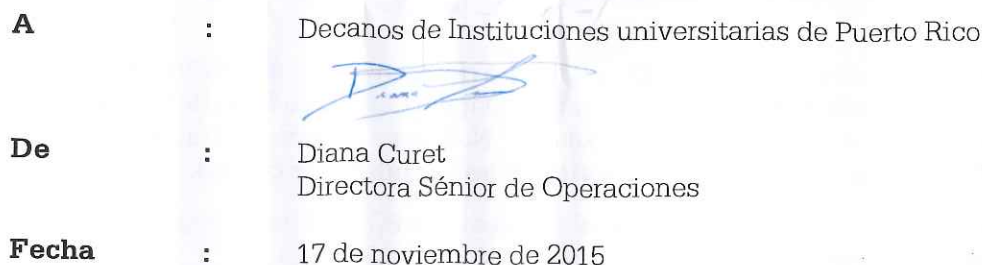 A : Decanos de Instituciones universitarias de Puerto Rico
Diana
De : Diana Curet
Directora Sénior de Operaciones
Fecha : 17 de noviembre de 2015